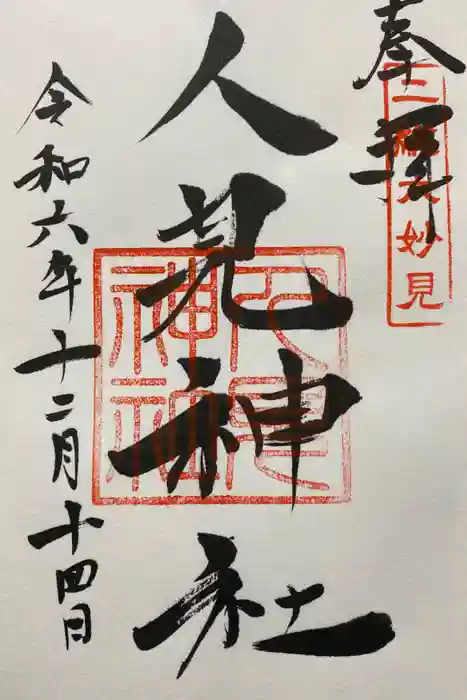 奉拝
妙見
人見神社
人見
神社
令和六年十二月十四日